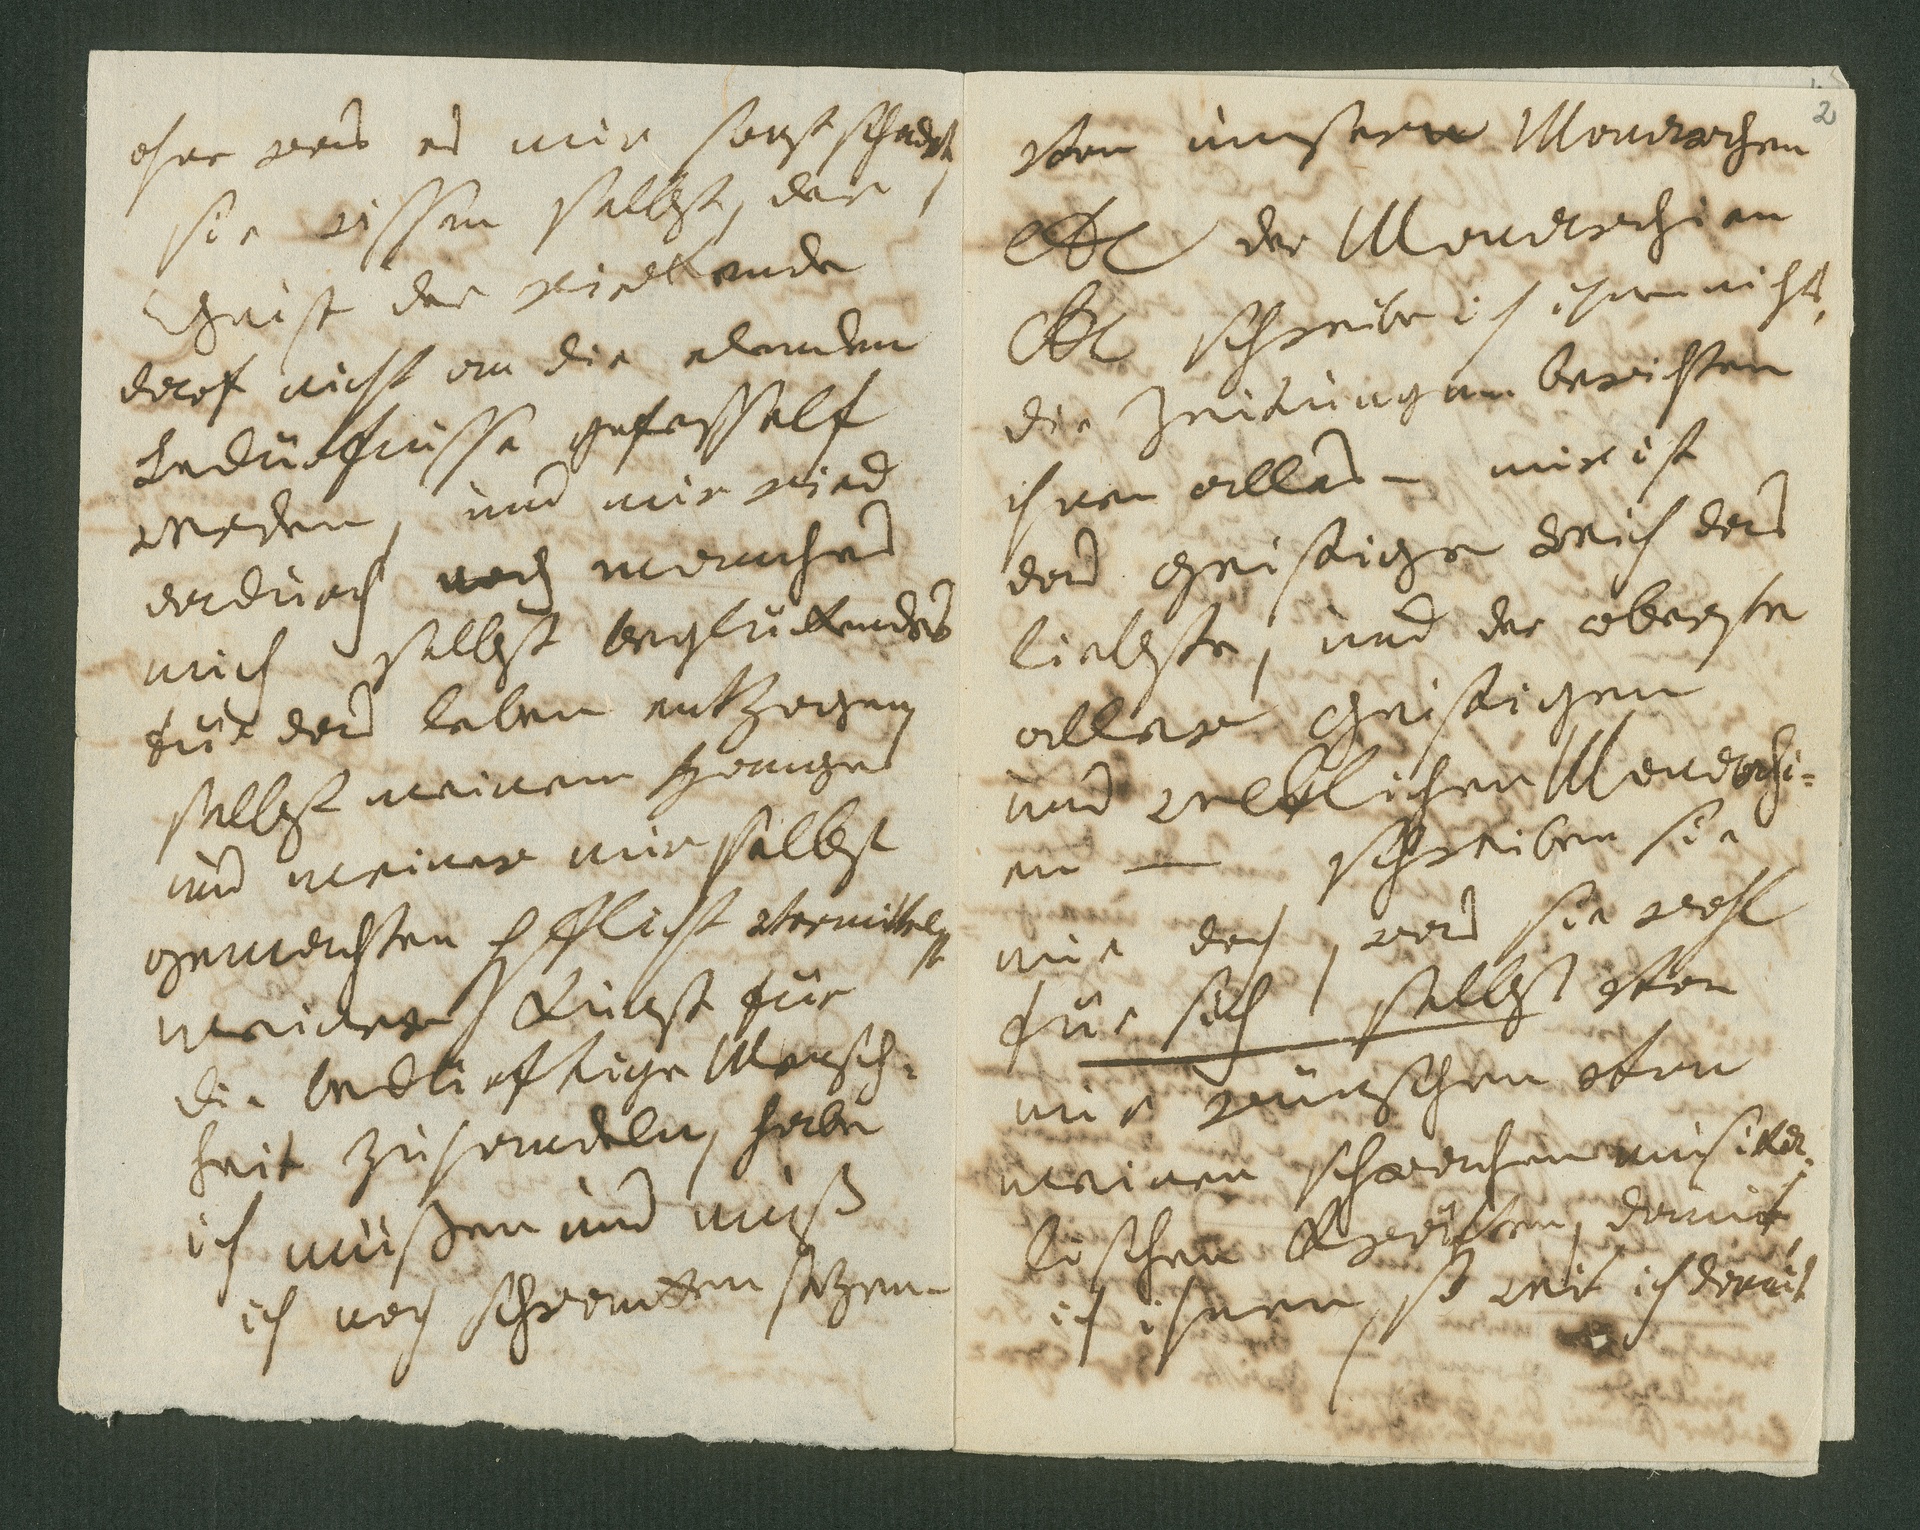 aber was es mir sonst schadet,
sie wissen selbst, der
Geist der wirkende
darf nicht an die elenden
Bedürfnisse gefesselt
werden, und mir wird
dadurch noch manches
mich selbst beglückendes
für das leben entzogen,
selbst meinem Hange
und meiner mir selbst
gemachten Pflicht vermittelst
meiner Kunst für
die bedürftige Mensch-
heit zu handeln, habe
ich müßen und muß
ich noch schranken sezen –
2
von unsern Monarchen
etc der Monarchien
etc schreibe ich ihnen nichts,
die Zeitungen berichten
ihnen alles – mir ist
das geistige Reich das
liebste, und der oberste
aller geistigen
und weltlichen Monarchi-
en – schreiben sie
mir doch, was sie wohl
für sich selbst von
mir wünschen von
meinen schwachen musika-
lischen Kräften, damit
ich ihnen, so weit ich damit